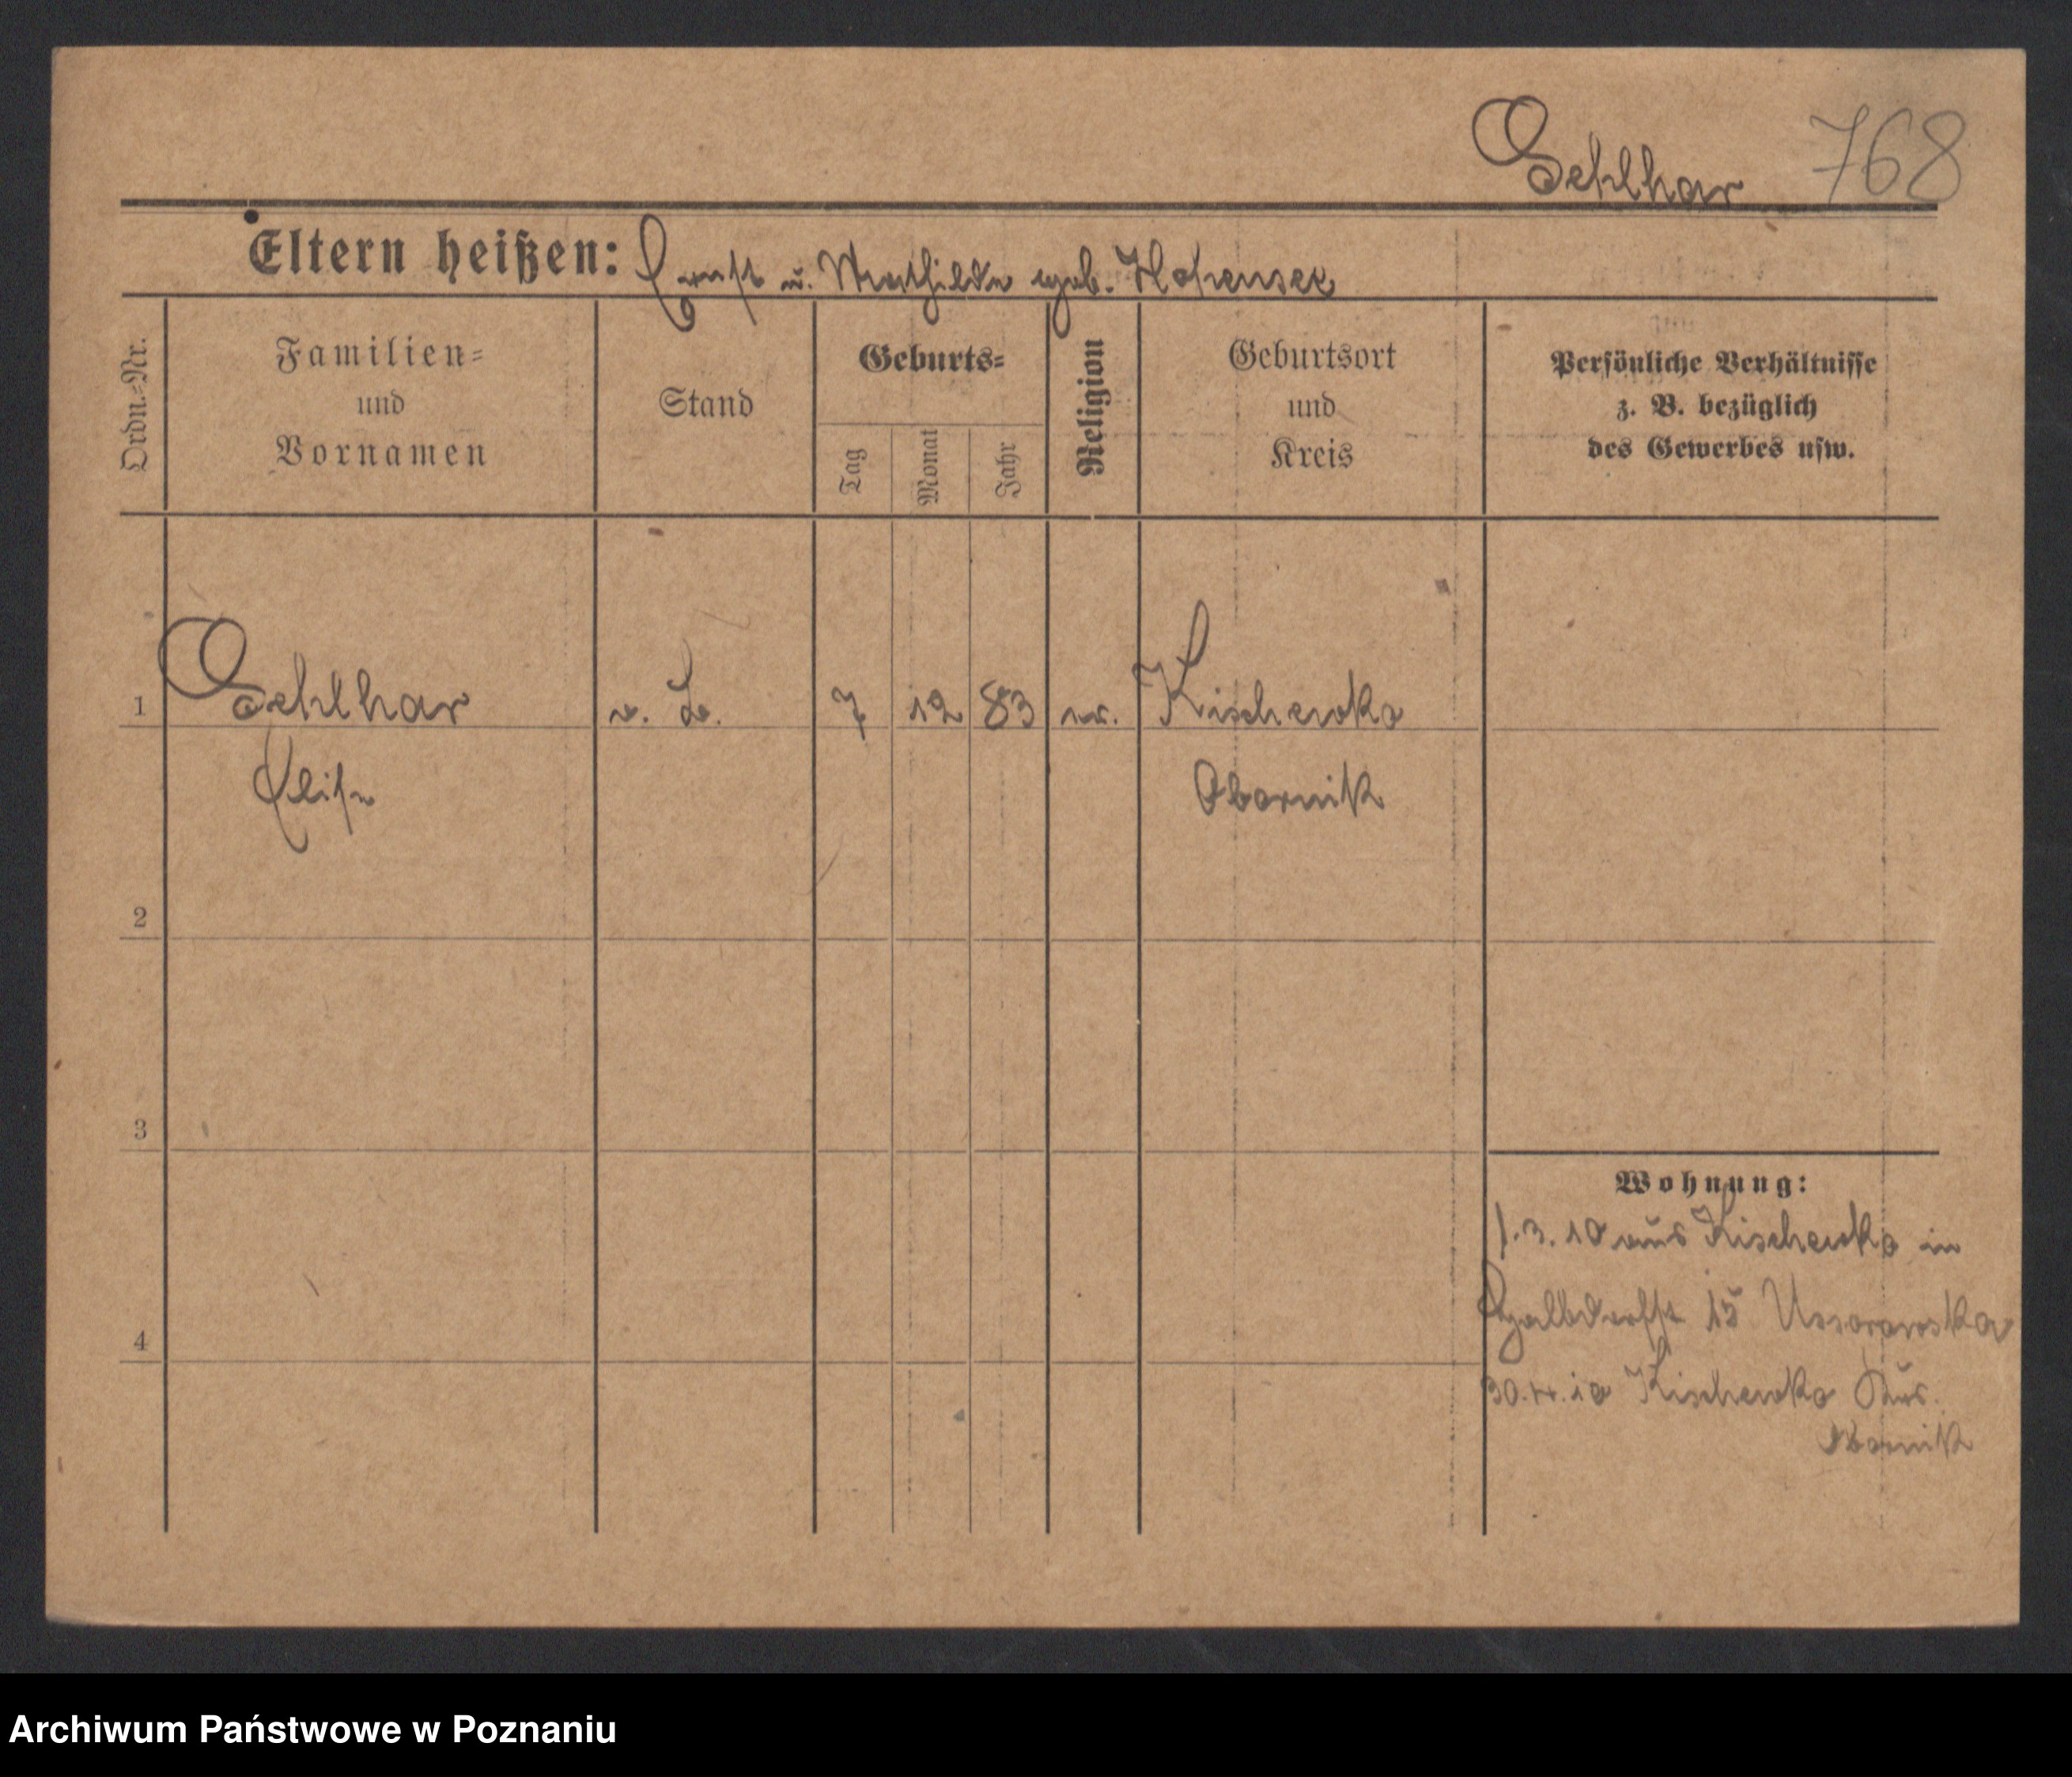 Sehlhar 768
Eltern heißen: Ernst u. Mathilde geb. Hohensee
Ordn.-Nr.
Familien-
und
Vornamen
Stand
Geburts-
Tag
Monat
Jahr
Religion
Geburtsort
und
Kreis
Persönliche Verhältnisse
z. B. bezüglich
des Gewerbes usw.
1 Sehlhar 7 12 83 Kischewko
Elise Obornik
2
3
4
Wohnung:
1.3.10 aus Kischewko in
15
Kischewko
Obornik
Archiwum Państwowe w Poznaniu